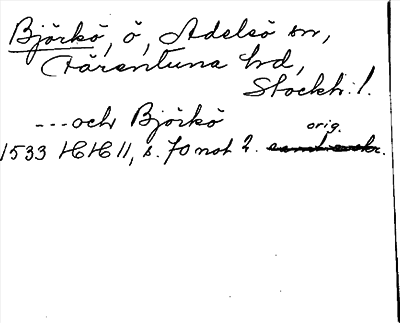 Björkö, ö, Adelsö sn,
Färentuna hd,
Stockh:s l.
---och Björkö
orig.
1533 HH II, s. 70 not 2.